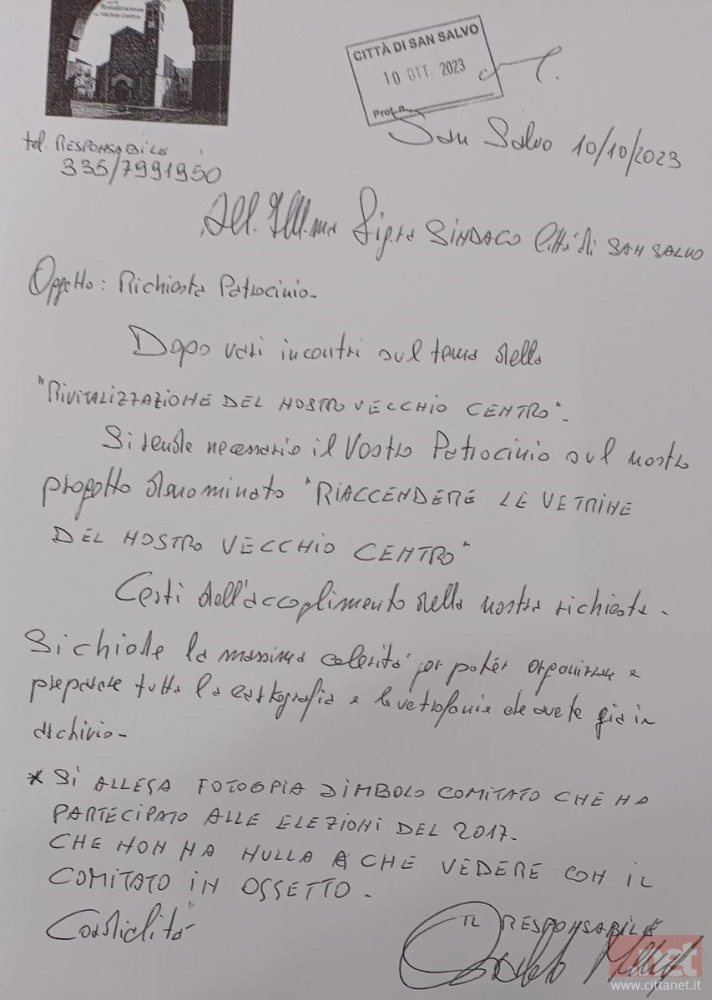 Rivitalizzazione
Vecchio Centro
CITTÀ DI SAN SALVO
10 OTT. 2023
Prot. n.
San Salvo 10/10/2023
tel. RESPONSABILE
335/7991950
All. Ill.ma Sig.ra SINDACO Città di SAN SALVO
Oggetto: Richiesta Patrocinio-
Dopo vari incontri sul tema della
"RIVITALIZZAZIONE DEL NOSTRO VECCHIO CENTRO".
Si rende necessario il Vostro Patrocinio sul nostro
progetto denominato "RIACCENDERE LE VETRINE
DEL NOSTRO VECCHIO CENTRO"
Certi dell'accoglimento della nostra richiesta.
Si chiede la massima celerità per poter organizzare e
preparare tutta la cartografia e le vetrofanie che avete già in
archivio-
* SI ALLEGA FOTOCOPIA SIMBOLO COMITATO CHE HA
PARTECIPATO ALLE ELEZIONI DEL 2017.
CHE NON HA NULLA A CHE VEDERE CON IL
COMITATO IN OGGETTO.
Cordialità
IL RESPONSABILE
net
www.cittanet.it